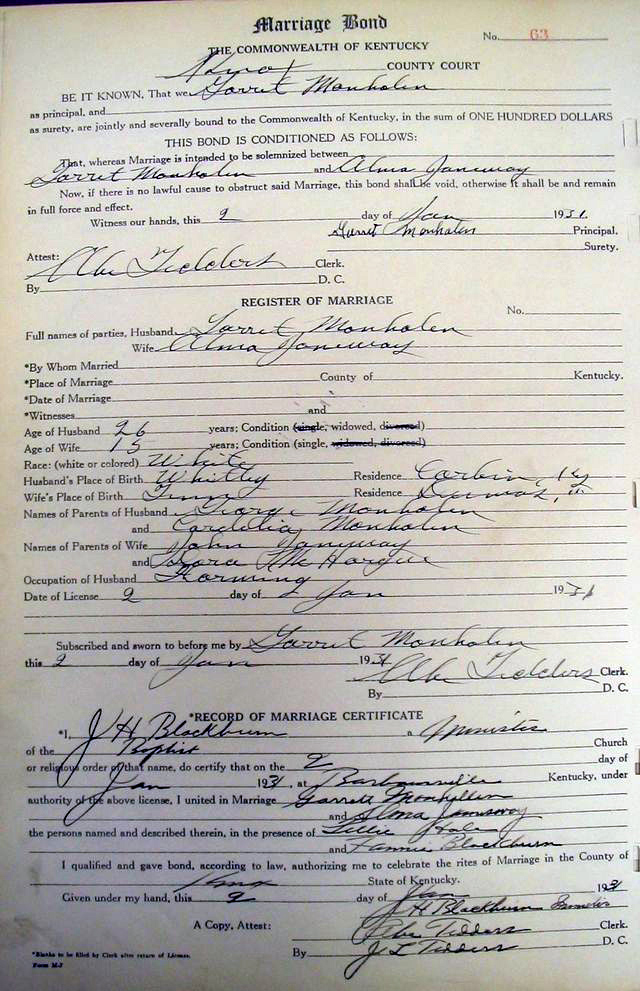 Marriage Bond
No. 63
THE COMMONWEALTH OF KENTUCKY
Knox COUNTY COURT
BE IT KNOWN, That we Garret Monholen
as principal, and
as surety, are jointly and severally bound to the Commonwealth of Kentucky, in the sum of ONE HUNDRED DOLLARS
THIS BOND IS CONDITIONED AS FOLLOWS:
That, whereas Marriage is intended to be solemnized between
Garret Monholen and Alma Janeway
Now, if there is no lawful cause to obstruct said Marriage, this bond shall be void, otherwise it shall be and remain
in full force and effect.
Witness our hands, this 2 day of Jan 1931.
Garret Monholen Principal.
Surety.
Attest:
Abe Tedders Clerk.
By D. C.
REGISTER OF MARRIAGE
No.
Full names of parties, Husband Garret Monholen
Wife Alma Janeway
*By Whom Married
*Place of Marriage County of Kentucky.
*Date of Marriage
*Witnesses and
Age of Husband 26 years; Condition (single, widowed, divorced)
Age of Wife 15 years; Condition (single, widowed, divorced)
Race: (white or colored) White
Husband's Place of Birth Whitley Residence Corbin, Ky
Wife's Place of Birth Tenn Residence
Names of Parents of Husband George Monholen
and Cordelia Monholen
Names of Parents of Wife John Janeway
and McHargue
Occupation of Husband Farming
Date of License 2 day of Jan 1931
Subscribed and sworn to before me by Garret Monholen
this 2 day of Jan 1931
Abe Tedders Clerk.
By D. C.
*RECORD OF MARRIAGE CERTIFICATE
*I, J H Blackburn a Minister
of the Baptist Church
or religious order of that name, do certify that on the 2 day of
Jan 1931, at Barbourville Kentucky, under
authority of the above license, I united in Marriage Garrett Monhollen
and Alma Janeway
the persons named and described therein, in the presence of Lillie Hale
and Fannie Blackburn
I qualified and gave bond, according to law, authorizing me to celebrate the rites of Marriage in the County of
Knox State of Kentucky.
Given under my hand, this 2 day of Jan 1931
J H Blackburn
A Copy, Attest: Abe Tedders Clerk.
By J L Tedders D. C.
*Blanks to be filled by Clerk after return of License.
Form M-J